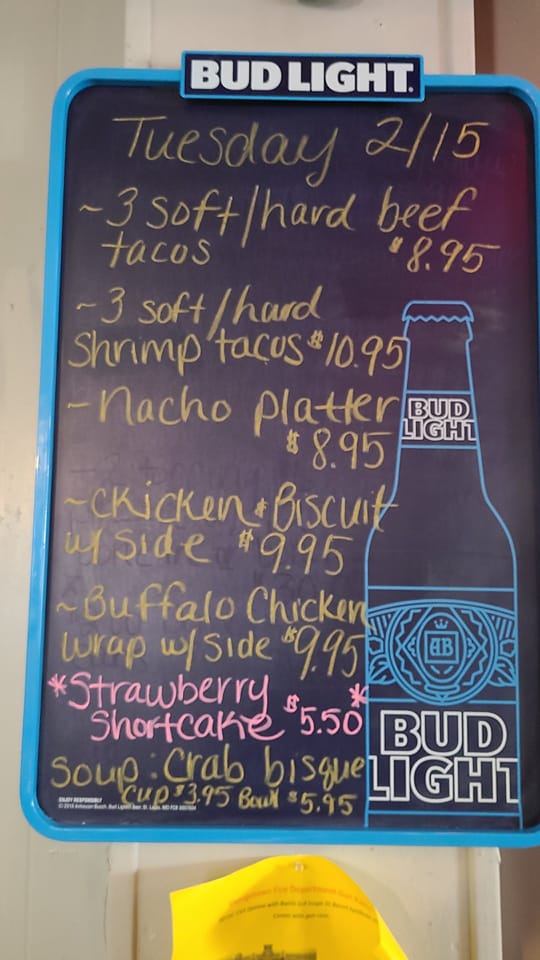 BUD LIGHT.
Tuesday 2/15
~3 soft/hard beef
tacos $8.95
~3 soft/hard
Shrimp tacos $10.95
~Nacho platter
$8.95
~Chicken & Biscuit
w/ side $9.95
~Buffalo Chicken
wrap w/ side $9.95
*Strawberry
Shortcake $5.50*
Soup: Crab bisque
Cup $3.95 Bowl $5.95
BUD
LIGHT
AB
BUD
LIGHT
ENJOY RESPONSIBLY
Fire Department